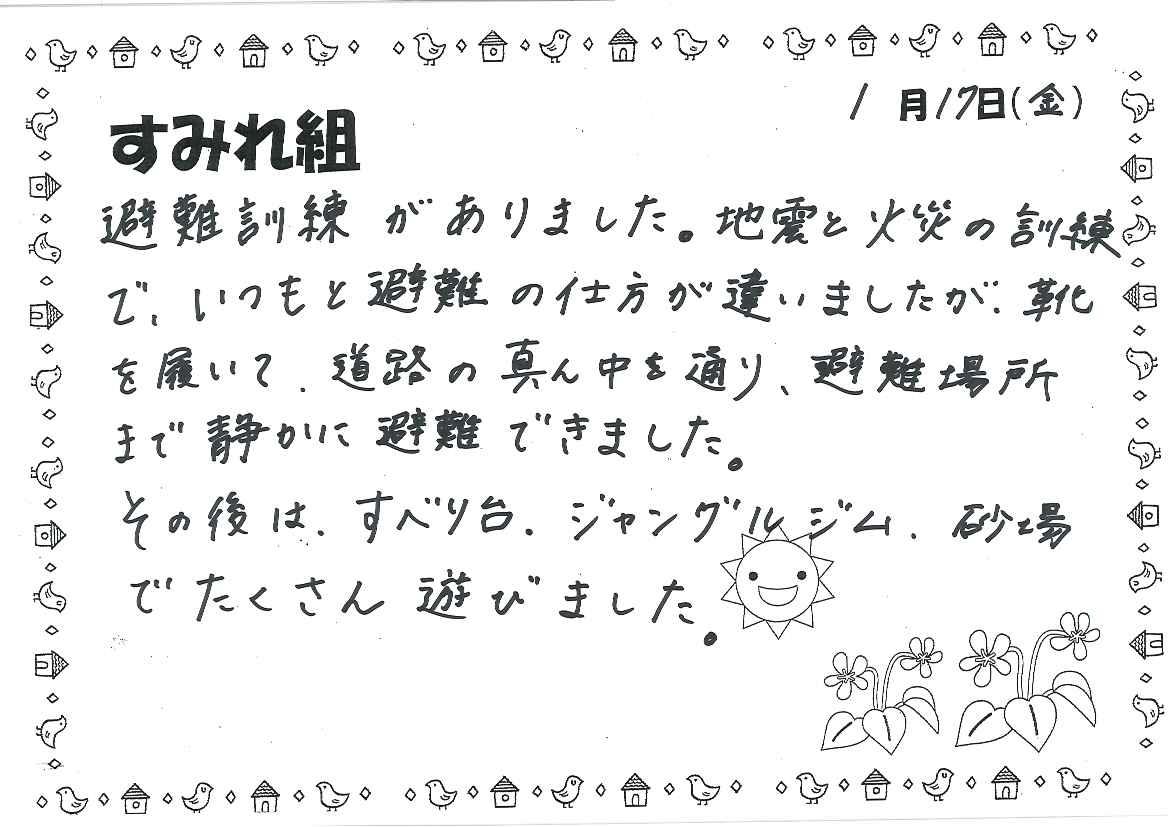 1月17日(金)
すみれ組
避難訓練がありました。地震と火災の訓練
で、いつもと避難の仕方が違いましたが、靴
を履いて、道路の真ん中を通り、避難場所
まで静かに避難できました。
その後は、すべり台、ジャングルジム、砂場
でたくさん遊びました。